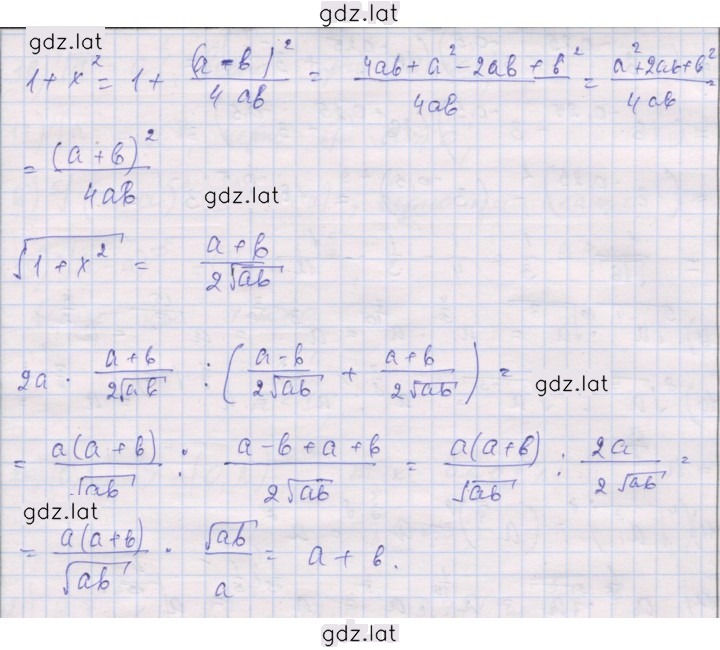 gdz.lat
gdz.lat
1 + x² = 1 + (a - b)²/(4ab) = (4ab + a² - 2ab + b²)/(4ab) = (a² + 2ab + b²)/(4ab) =
= (a + b)²/(4ab)
gdz.lat
√(1 + x²) = (a + b)/(2√ab)
2a · (a + b)/(2√ab) : ((a - b)/(2√ab) + (a + b)/(2√ab)) =
gdz.lat
= a(a + b)/√ab : (a - b + a + b)/(2√ab) = a(a + b)/√ab : 2a/(2√ab) =
gdz.lat
= a(a + b)/√ab · √ab/a = a + b.
gdz.lat